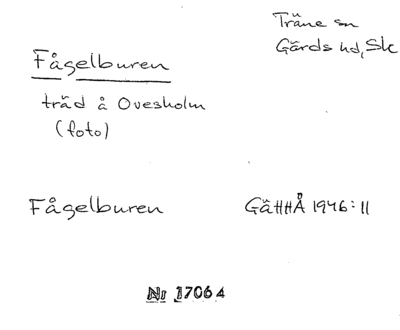 Träne sn
Gärds hd, Sk
Fågelburen
träd å Ovesholm
(foto)
Fågelburen
GäHHÅ 1946:11
Nr 17064